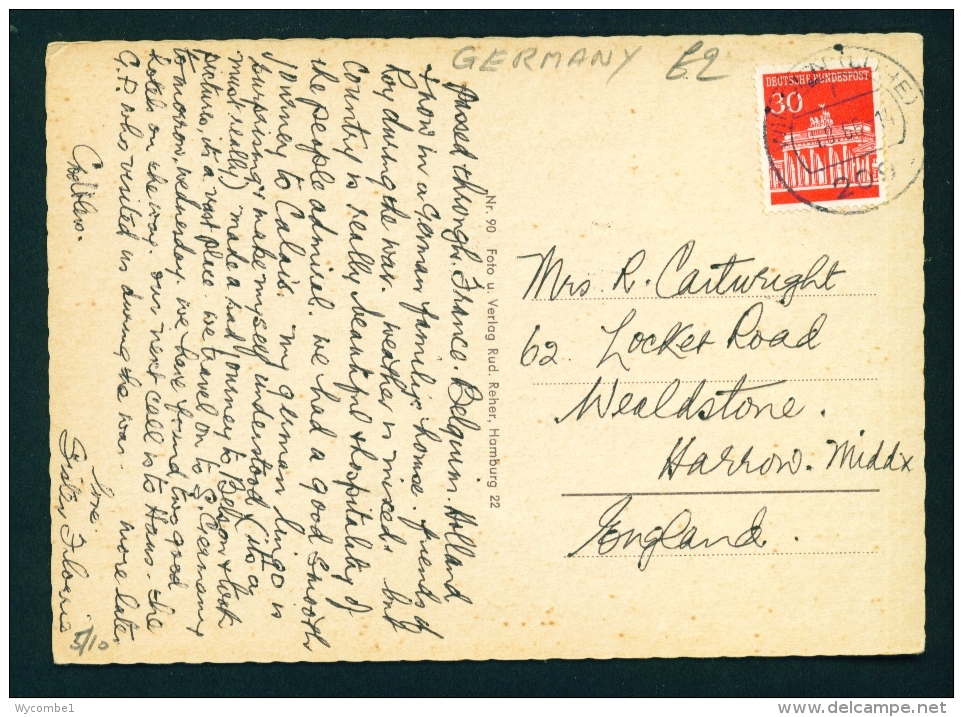 GERMANY £2
DEUTSCHE BUNDESPOST
30
209
Passed through. France. Belguim. Holland
& now in a German family's home. friends of
Roy during the war. Weather is mixed. but
Country is really beautiful & hospitality of
the people admirel. we had a good smooth
journey to Calais. my german lingo is
surprising & make myself understood (its a
must really) made a road journey to Belson & took
pictures, it's a vast place. we travel on to S. Germany
tomorrow, wednesday. we have found two good
hotels on the way. our next call is to Hans. the
G.P. who visited us during the war. more later
God Bless.
love.
Sister Florrie
5/10
Nr. 90 Foto u. Verlag Rud. Reher, Hamburg 22
Mrs R. Cartwright
62 Locket Road
Wealdstone.
Harrow. Middx
England.
Wycombe1
delcampe.net